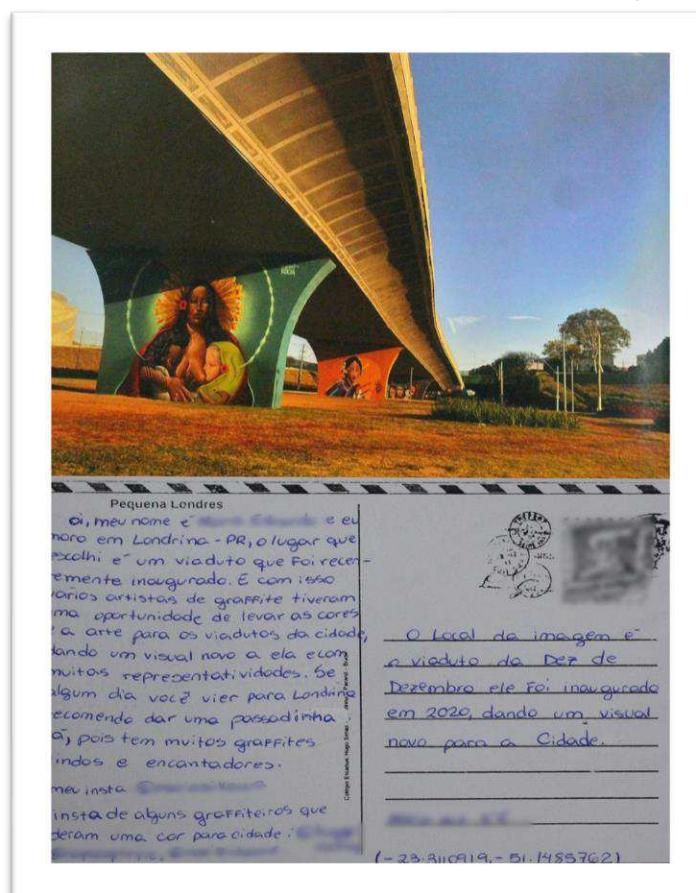 Pequena Londres
oi, meu nome é e eu
moro em Londrina - PR, o lugar que
escolhi é um viaduto que foi recen-
temente inaugurado. E com isso
varios artistas de graffite tiveram
uma oportunidade de levar as cores
e a arte para os viadutos da cidade,
dando um visual novo a ela e com
muitas representatividades. Se
algum dia você vier para Londrina
recomendo dar uma passadinha
lá, pois tem muitos graffites
lindos e encantadores.
meu insta
insta de alguns graffiteiros que
deram uma cor para cidade:
Colégio Estadual Hugo Simas
Paraná - Brasil
O Local da imagem é
o viaduto da Dez de
Dezembro ele Foi inaugurado
em 2020, dando um visual
novo para a Cidade.
(-23.3110919,-51.1485762)